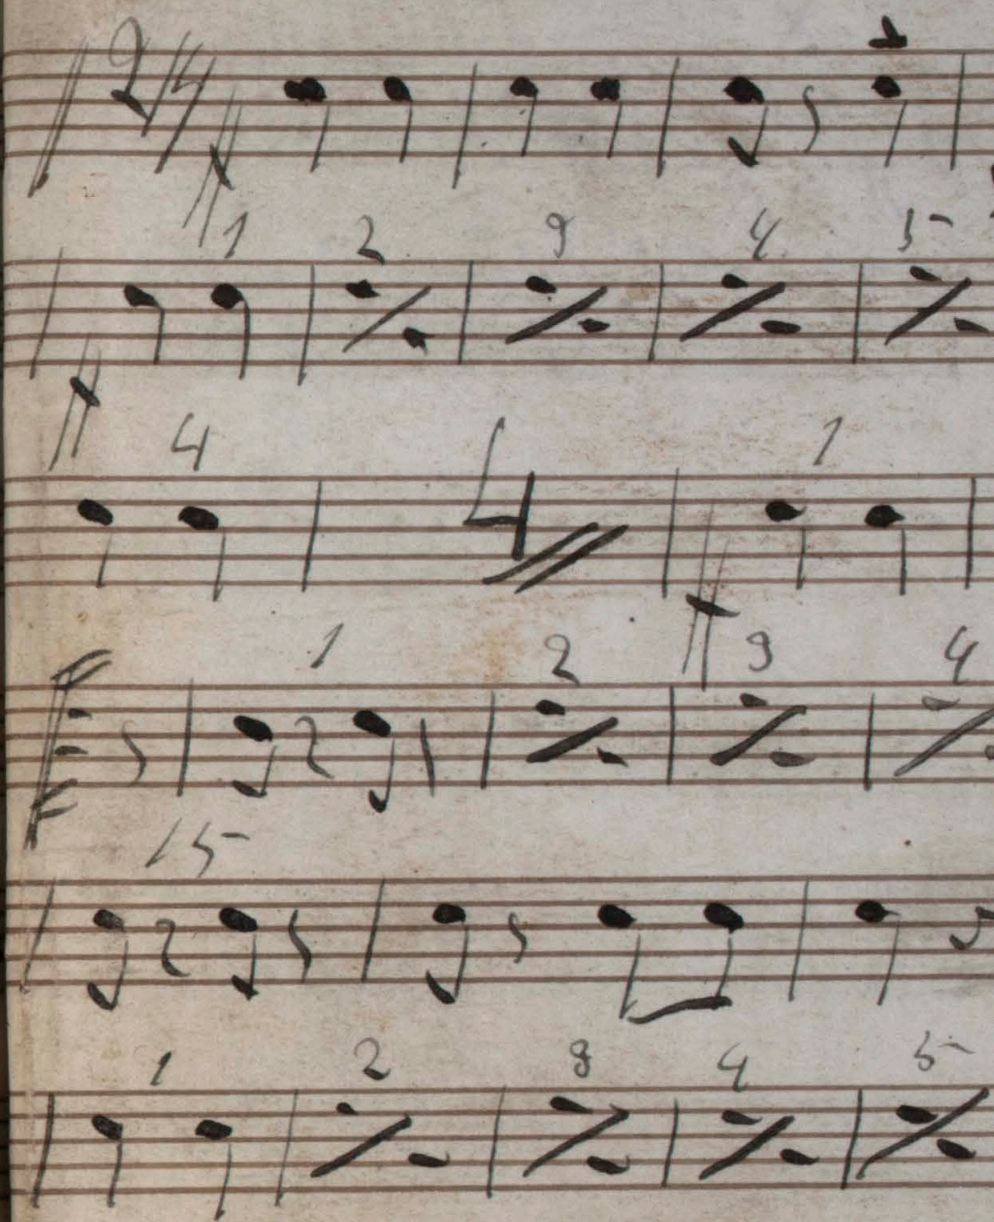 2/4
1 2 3 4 5
4 1
4
1 2 3 4
15
1 2 3 4 5